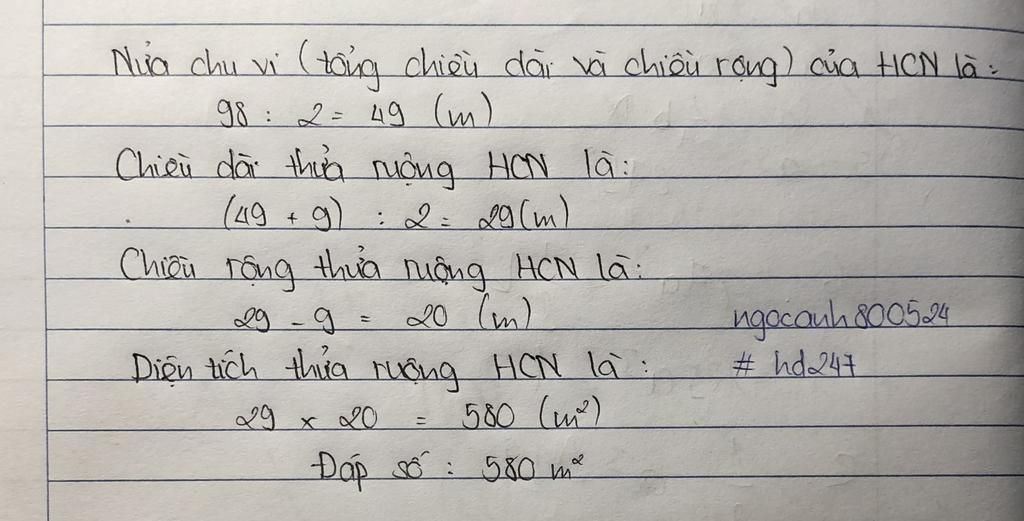 Nửa chu vi (tổng chiều dài và chiều rộng) của HCN là:
98 : 2 = 49 (m)
Chiều dài thửa ruộng HCN là:
(49 + 9) : 2 = 29(m)
Chiều rộng thửa ruộng HCN là:
29 - 9 = 20 (m)
ngocanh800524
Diện tích thửa ruộng HCN là:
# hd247
29 x 20 = 580 (m²)
Đáp số : 580 m²